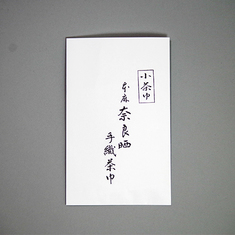 小茶巾
本麻奈良晒
手織茶巾